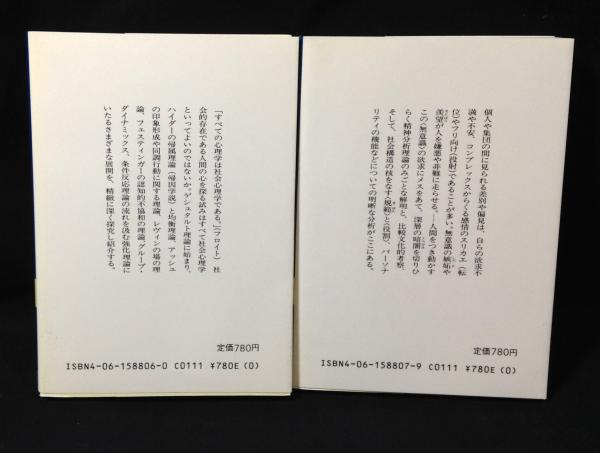 「すべての心理学は社会心理学である。」(フロイト) 社
会的存在である人間の心を探る試みはすべて社会心理学
といってよいのではないか。ゲシュタルト理論に始まり、
ハイダーの帰属理論(帰因学説)と均衡理論、アッシュ
の印象形成や同調行動に関する理論、レヴィンの場の理
論、フェスティンガーの認知的不協和の理論、グループ・
ダイナミックス、条件反応理論の流れを汲む強化理論に
いたるさまざまな展開を、精緻に深く探究し紹介する。
定価780円
ISBN4-06-158806-0 C0111 ¥780E (0)
個人や集団の間に見られる差別や偏見は、自らの欲求不
満や不安、コンプレックスからくる感情のスリカエ(転
位)やフリ向け(投射)であることが多い。無意識の嫉妬や
羨望が人を嫌悪や非難に走らせる。——人間をつき動かす
この〈無意識〉の欲求にメスをあて、深層の暗闇を切りひ
らく精神分析理論のみごとな解明と、比較文化的考察、
そして、社会構造の核をなす〈規範〉と〈役割〉、パーソナ
リティの機能などについての明晰な分析がここにある。
定価780円
ISBN4-06-158807-9 C0111 ¥780E (0)